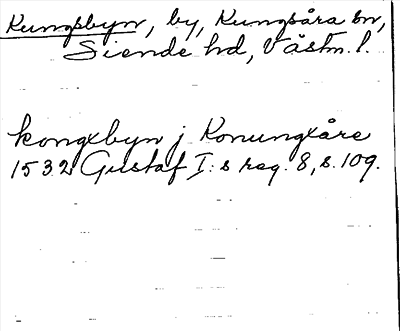 Kungsbyn, by, Kungsåra sn,
Siende hd, Västm. l.
kongxbyn j Konungxåre
1532 Gustaf I:s reg. 8, s. 109.